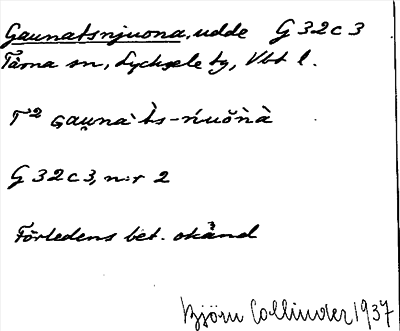 Gaunatsnjuona, udde G 32 c 3
Tärna sn, Lycksele lg, Vbt l.
T² gaunàts-ńuŏnà
G 32 c 3, n:r 2
Förledens bet. okänd
Björn Collinder 1937